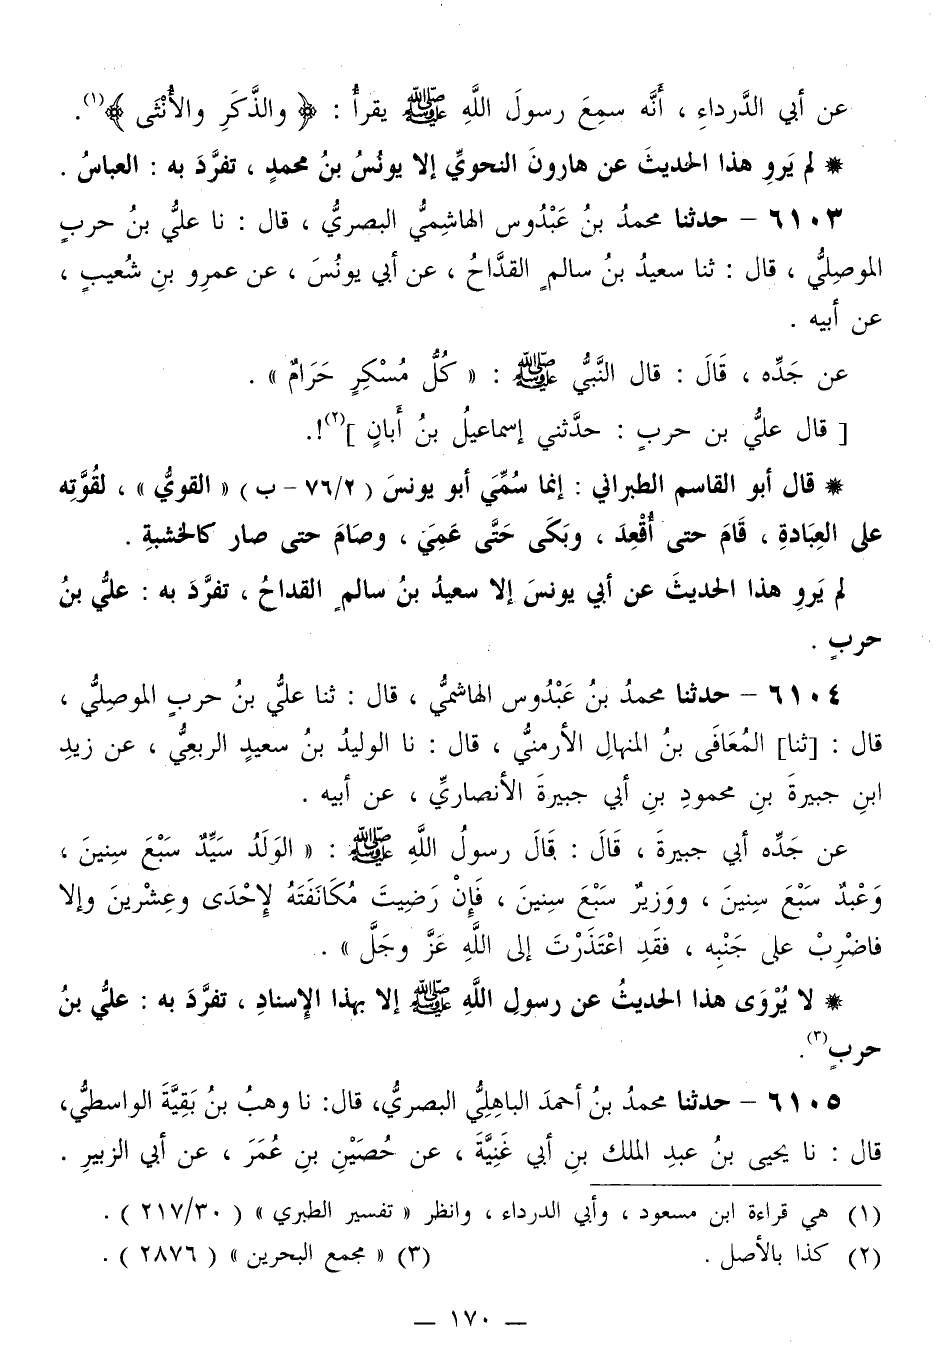 عن أبي الدَّرداءِ ، أنَّه سمِعَ رسولَ اللَّهِ ﷺ يقرأُ : ﴿ والذَّكَرِ والأُنْثى ﴾(١).
* لم يَروِ هذا الحديثَ عن هارونَ النحويِّ إلا يونُسُ بنُ محمدٍ ، تفرَّدَ به : العباسُ .
٦١٠٣ – حدثنا محمدُ بنُ عَبْدُوس الهاشِميُّ البصريُّ ، قال : نا عليُّ بنُ حربٍ
الموصِليُّ ، قال : ثنا سعيدُ بنُ سالمٍ القدَّاحُ ، عن أبي يونُسَ ، عن عمرِو بنِ شُعيبٍ ،
عن أبيه .
عن جَدِّه ، قَالَ : قال النَّبيُّ ﷺ : « كُلُّ مُسْكِرٍ حَرَامٌ » .
[ قال عليُّ بن حربٍ : حدَّثني إسماعيلُ بنُ أَبانٍ ](٢)!.
* قال أبو القاسم الطبراني : إنما سُمِّيَ أبو يونسَ ( ٧٦/٢ – ب ) « القويُّ » ، لقُوَّتِه
على العِبَادةِ ، قَامَ حتى أُقْعِدَ ، وبَكَى حَتَّى عَمِيَ ، وصَامَ حتى صار كالخشبةِ .
لم يَروِ هذا الحديثَ عن أبي يونسَ إلا سعيدُ بنُ سالمٍ القداحُ ، تفرَّدَ به : عليُّ بنُ
حربٍ .
٦١٠٤ – حدثنا محمدُ بنُ عَبْدُوس الهاشميُّ ، قال : ثنا عليُّ بنُ حربٍ الموصِليُّ ،
قال : [ثنا] المُعَافَى بنُ المنهالِ الأرمنيُّ ، قال : نا الوليدُ بنُ سعيدٍ الربعِيُّ ، عن زيدِ
ابنِ جبيرةَ بنِ محمودِ بنِ أبي جبيرةَ الأنصاريِّ ، عن أبيه .
عن جَدِّه أبي جبيرةَ ، قَالَ : قَالَ رسولُ اللَّهِ ﷺ : « الوَلَدُ سَيِّدٌ سَبْعَ سِنينَ ،
وَعْبدٌ سَبْعَ سِنينَ ، ووَزيرٌ سَبْعَ سِنينَ ، فَإنْ رَضِيتَ مُكَانَفَتَهُ لِإحْدَى وعِشْرينَ وإلا
فاضْرِبْ على جَنْبِه ، فقَدِ اعْتَذَرْتَ إلى اللَّهِ عَزَّ وجَلَّ » .
* لا يُرْوَى هذا الحديثُ عن رسولِ اللَّهِ ﷺ إلا بهذا الإسنادِ ، تفرَّدَ به : عليُّ بنُ
حربٍ(٣).
٦١٠٥ – حدثنا محمدُ بنُ أحمدَ الباهِليُّ البصريُّ، قال: نا وهبُ بنُ بَقِيَّةَ الواسطيُّ،
قال : نا يحيى بنُ عبدِ الملك بنِ أبي غَنِيَّةَ ، عن حُصَيْنِ بنِ عُمَرَ ، عن أبي الزبيرِ .
(١) هي قراءة ابن مسعود ، وأبي الدرداء ، وانظر « تفسير الطبري » ( ٢١٧/٣٠ ) .
(٢) كذا بالأصل . (٣) « مجمع البحرين » ( ٢٨٧٦ ) .
— ١٧٠ —